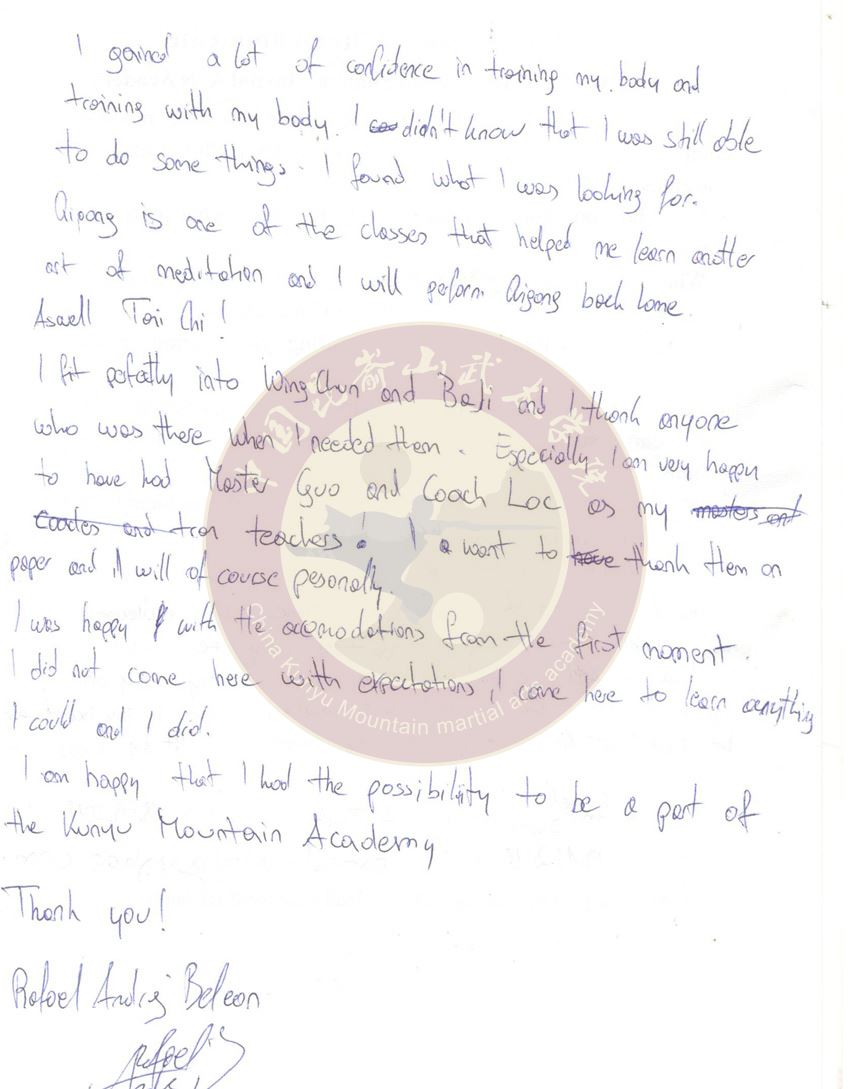 I gained a lot of confidence in training my body and
training with my body. I didn't know that I was still able
to do some things. I found what I was looking for.
Qigong is one of the classes that helped me learn another
art of meditation and I will perform Qigong back home
Aswell Tai Chi!
I fit pefectly into Wing Chun and BaJi and I thank anyone
who was there when I needed them. Especially I am very happy
to have had Master Guo and Coach Loc as my masters and
Coaches and teachers! I want to have thank them on
paper and I will of course pesonally.
I was happy with the accomodations from the first moment.
I did not come here with expectations I came here to learn everything
I could and I did.
I am happy that I had the possibility to be a part of
the Kunyu Mountain Academy
Thank you!
Rafael Andrej
中国昆嵛山武术学院
China Kunyu Mountain martial arts academy